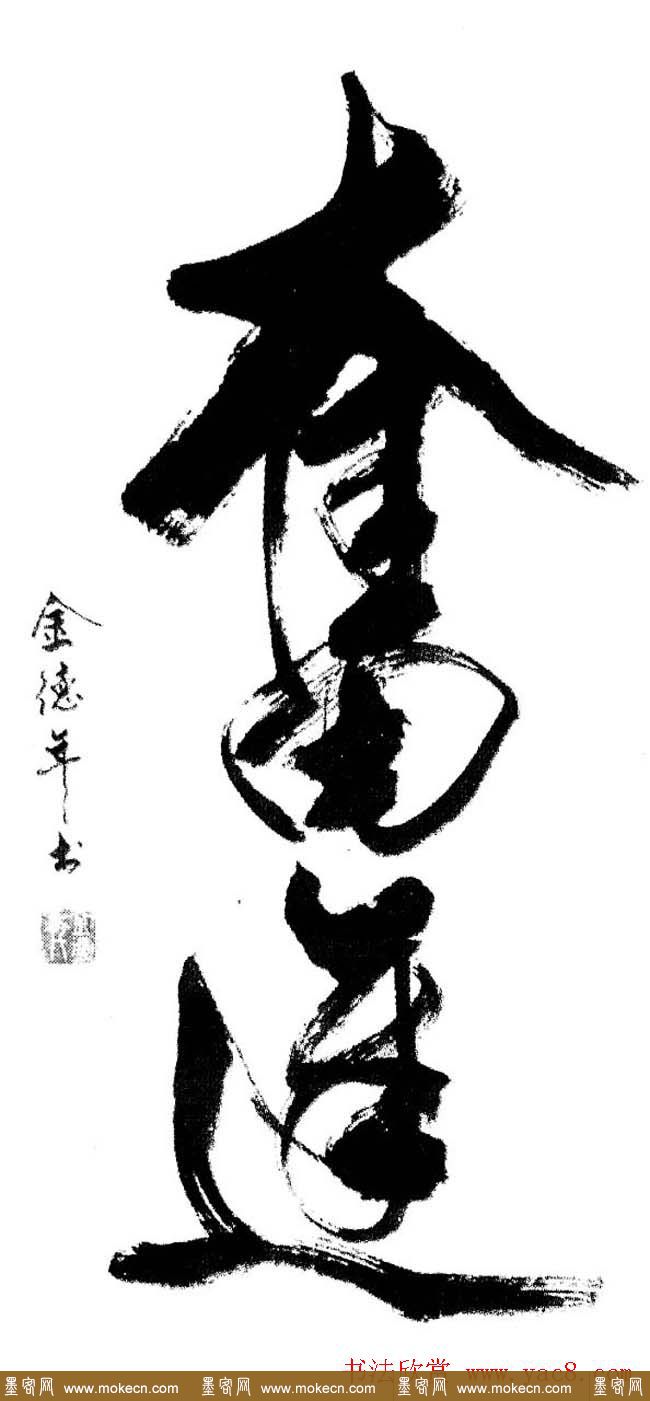 奮進
金德年书
书法欣赏 www.yac8.com
墨客网 www.mokecn.com 墨客网 www.mokecn.com 墨客网 www.mokecn.com 墨客网 www.mokecn.com